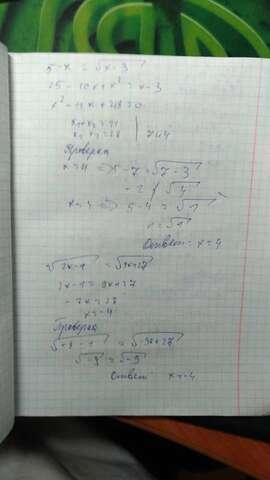 5-x = √x-3
25-10x+x² = x-3
x²-11x+28=0
x₁+x₂=11
x₁ x₂=28 | 7 и 4
Проверка
5-7=√7-3
-2 ≠ √4
x=4 => 5-4=√1
1=√1
Ответ: x=4
√7x-1 = √9x+27
7x-1=9x+27
-7x=28
x=-4
Проверка
√-9 = √-9
Ответ: x=-4